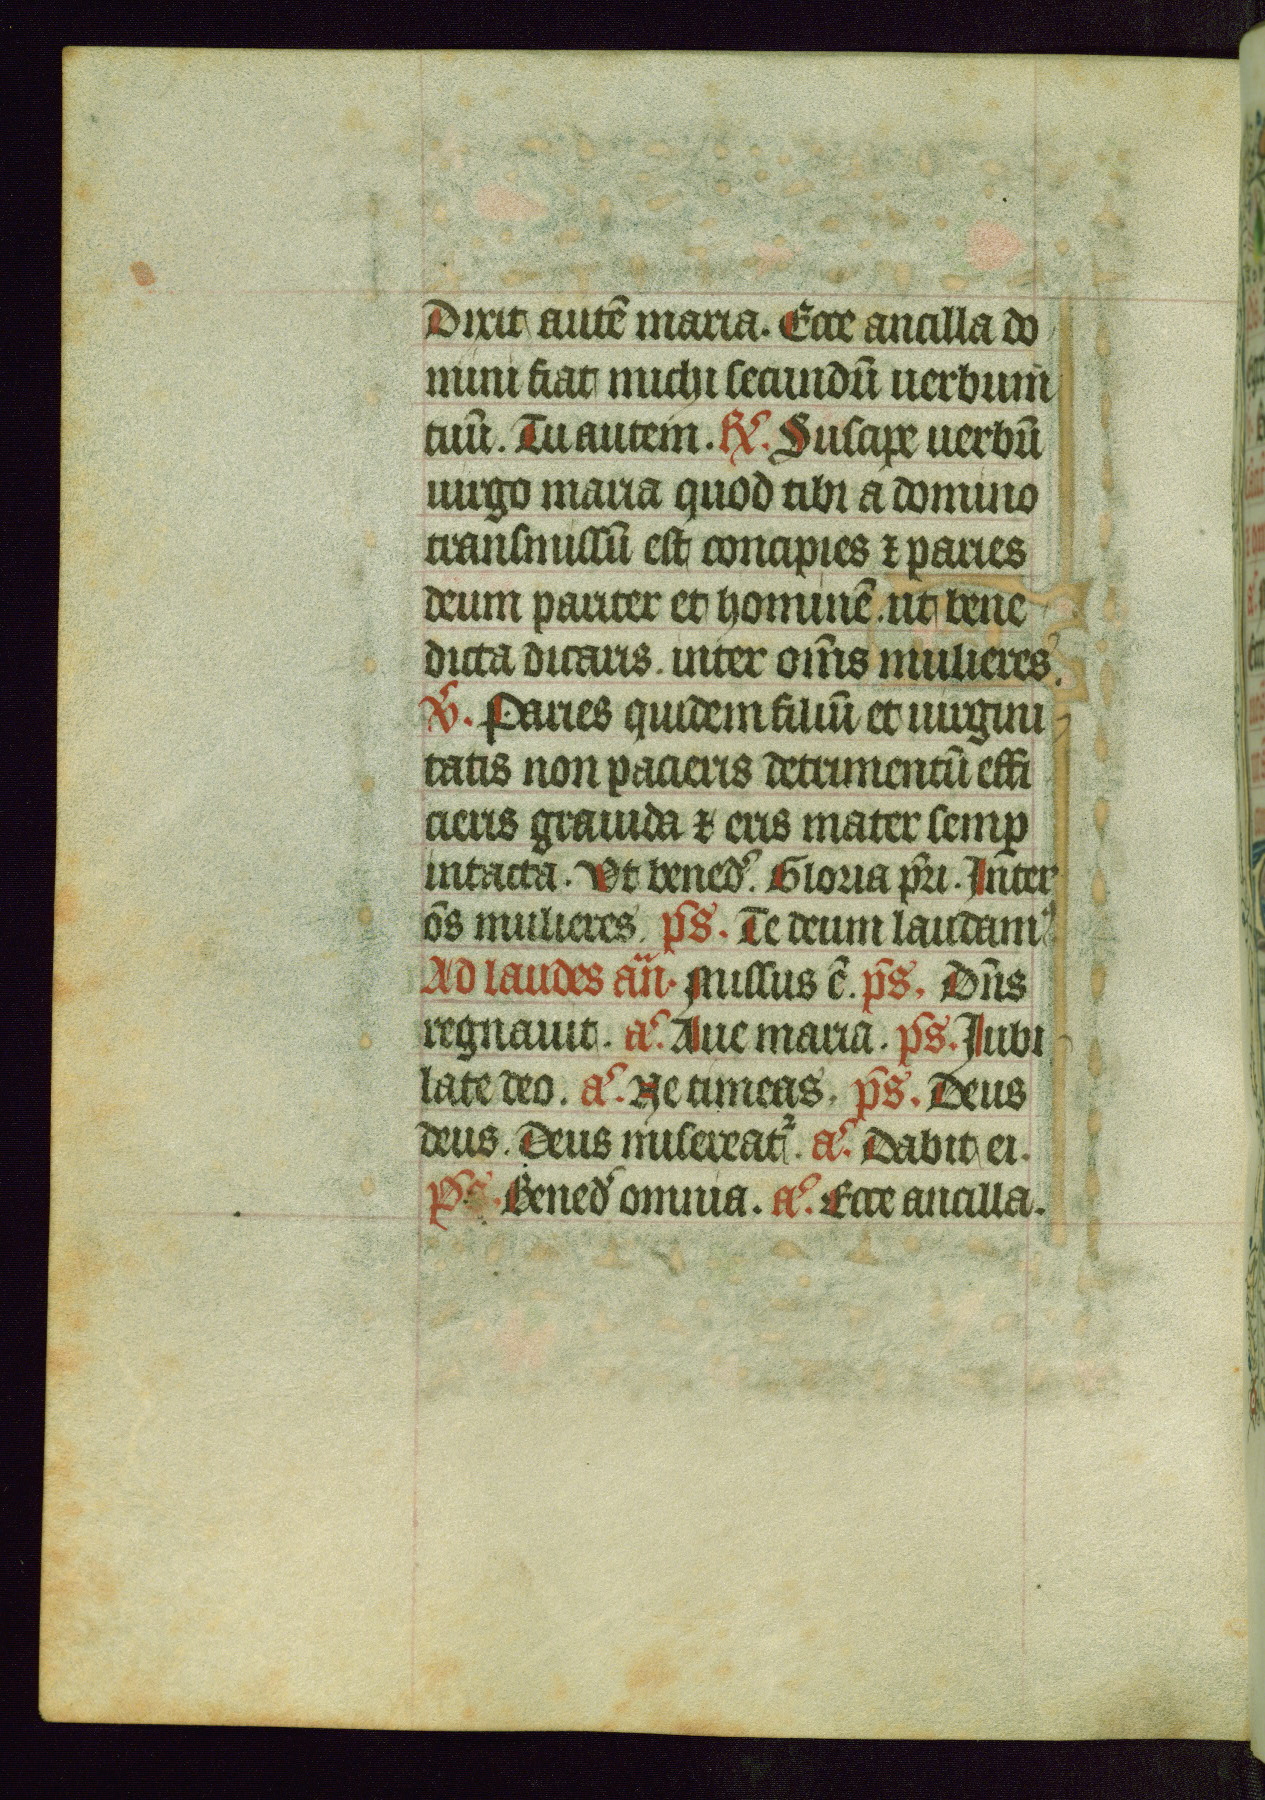 Dixit autē maria. Ecce ancilla do
mini fiat michi secundū uerbum
tuū. Tu autem. R̃. Suscipe uerbū
uirgo maria quod tibi a domino
transmissū est concipies ⁊ paries
deum pariter et hominē. ut bene
dicta dicaris. inter om̄s mulieres.
v̾. Paries quidem filiū et uirgini
tatis non pacieris detrimentū effi
cieris grauida ⁊ eris mater semp
intacta. Vt bened̾. Gloria p̄ri. Int̄er
ōs mulieres. p̄s. Te deum laudamꝰ
Ad laudes an̄. Missus ē. p̄s. Dn̄s
regnauit. a̾. Aue maria. p̄s. Iubi
late deo. a̾. Ne timeas. p̄s. Deus
deus. Deus misereatᷣ. a̾. Dabit ei.
p̄s. Bened̾ omnia. a̾. Ecce ancilla.